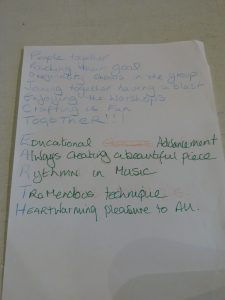 People together
Reaching their Goal
in the group
Joining together having a blast
Enjoying the Worshops
Crafting is Fun
TOGETHER!!!
Educational Advancement
Always creating a beautiful piece
Rythmn in Music
Tremendous technique
Heartwarming pleasure to All.